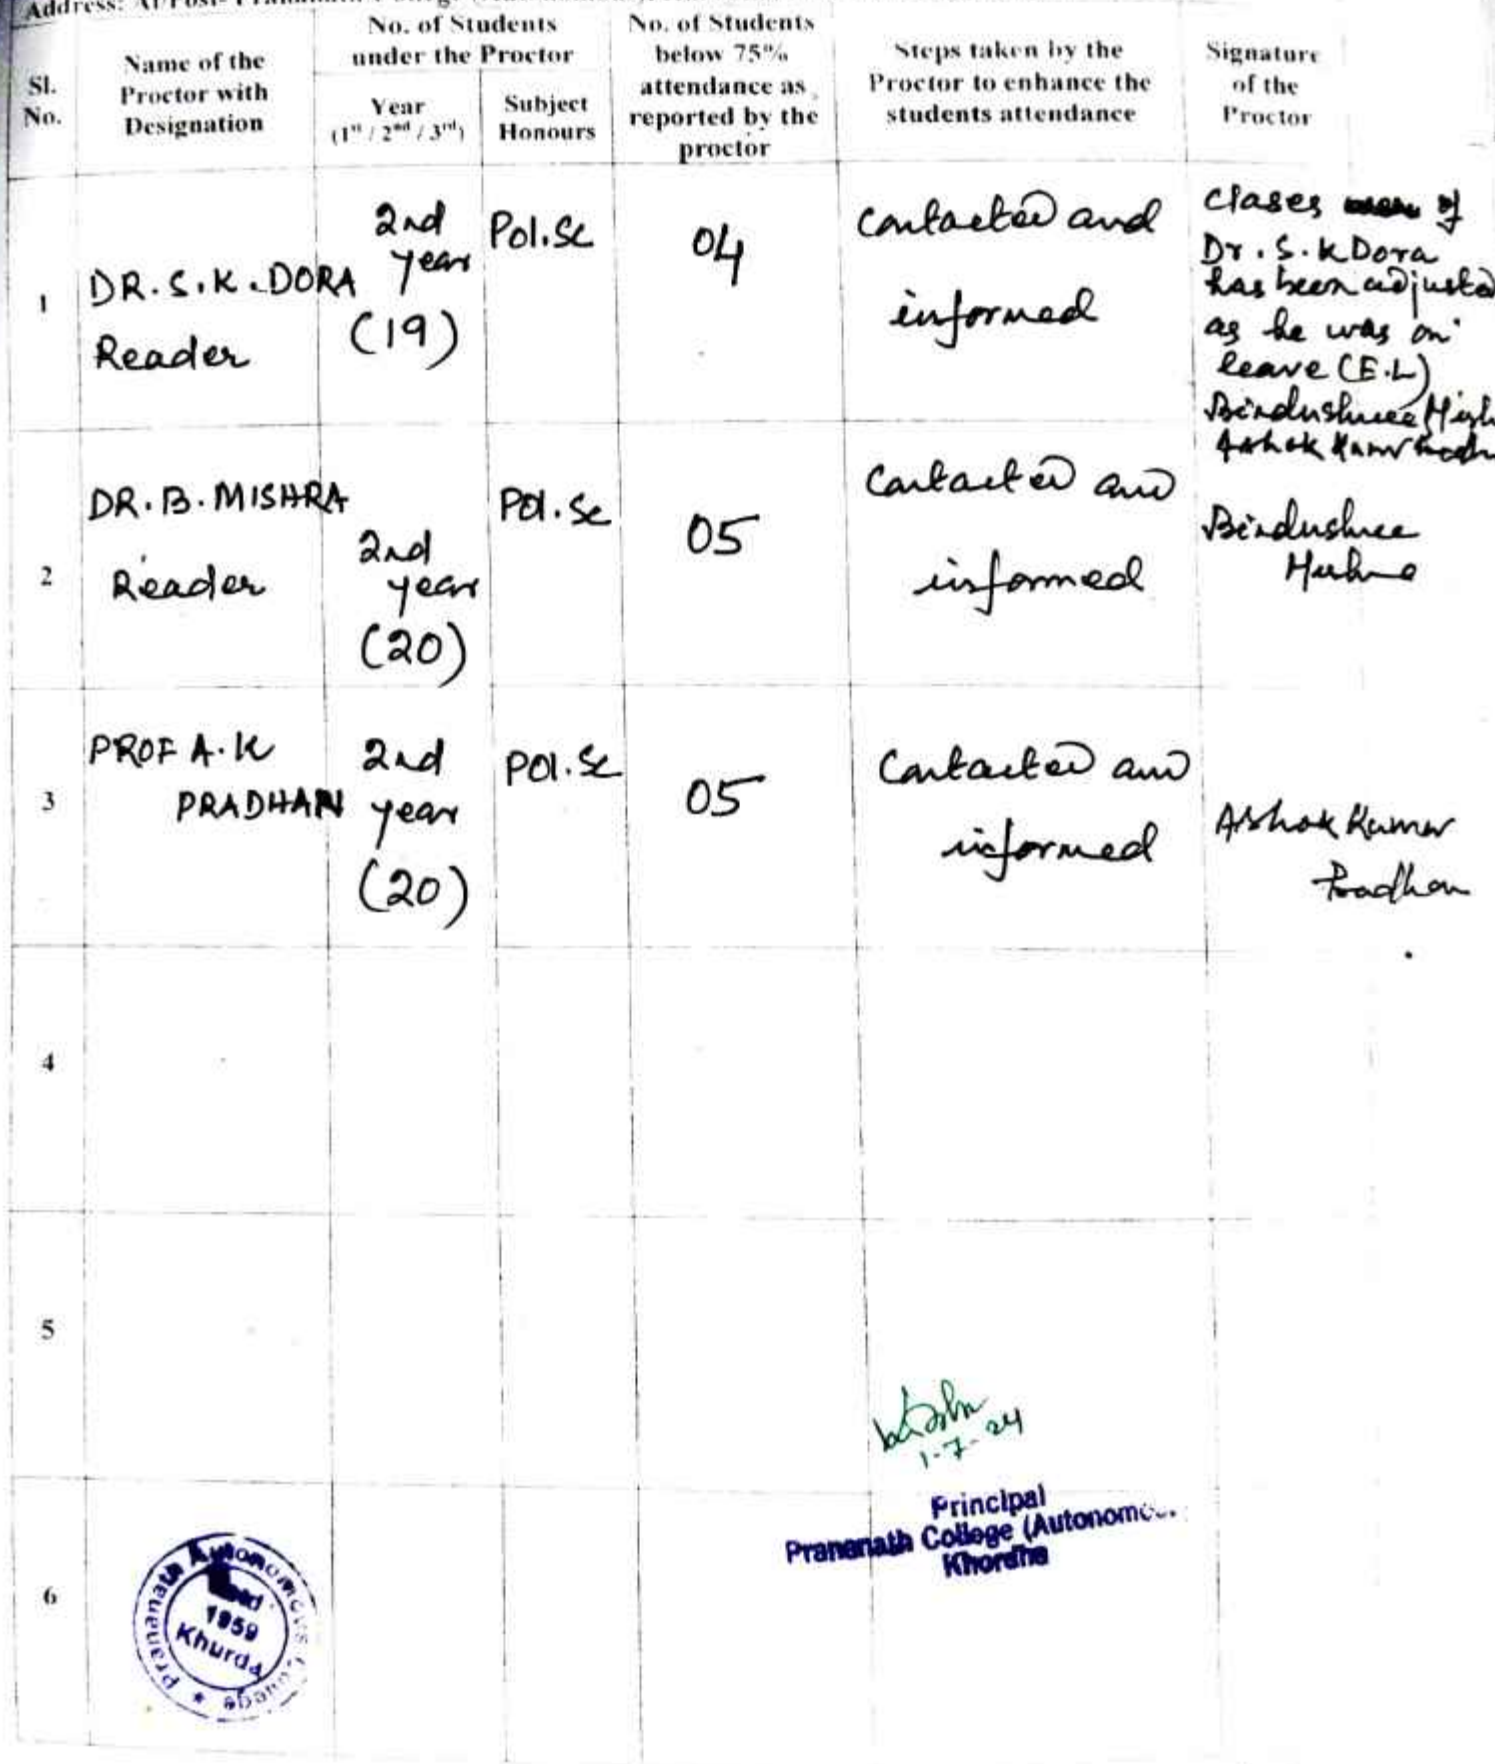 Address: At/Post-
Sl.
No.
Name of the
Proctor with
Designation
No. of Students
under the Proctor
Year
(1st / 2nd / 3rd)
Subject
Honours
No. of Students
below 75%
attendance as
reported by the
proctor
Steps taken by the
Proctor to enhance the
students attendance
Signature
of the
Proctor
1
DR. S. K. DORA
Reader
2nd
year
(19)
Pol. Sc
04
Contacted and
informed
Clases of
Dr. S. K Dora
has been adjusted
as he was on
leave (E.L)
Bindushree
Ashok Kumar
2
DR. B. MISHRA
Reader
2nd
year
(20)
Pol. Sc
05
Contacted and
informed
Bindushree
Mishra
3
PROF A. K
PRADHAN
2nd
year
(20)
Pol. Sc
05
Contacted and
informed
Ashok Kumar
Pradhan
4
5
1-7-24
Principal
Prananath College (Autonomous
Khordha
6
Prananath Autonomous College
1959
Khurda